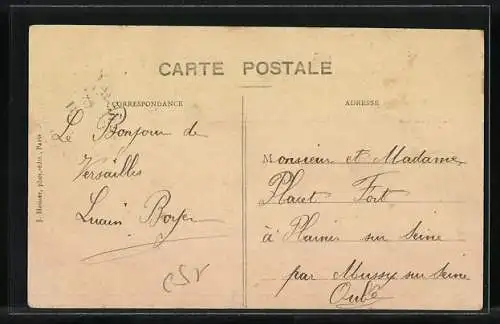 CARTE POSTALE
CORRESPONDANCE
ADRESSE
Le Bonjour de
Versailles
Monsieur et Madame
Fort
à Plaines sur Seine
par Mussy sur Seine
Aube
phot. édit., Paris